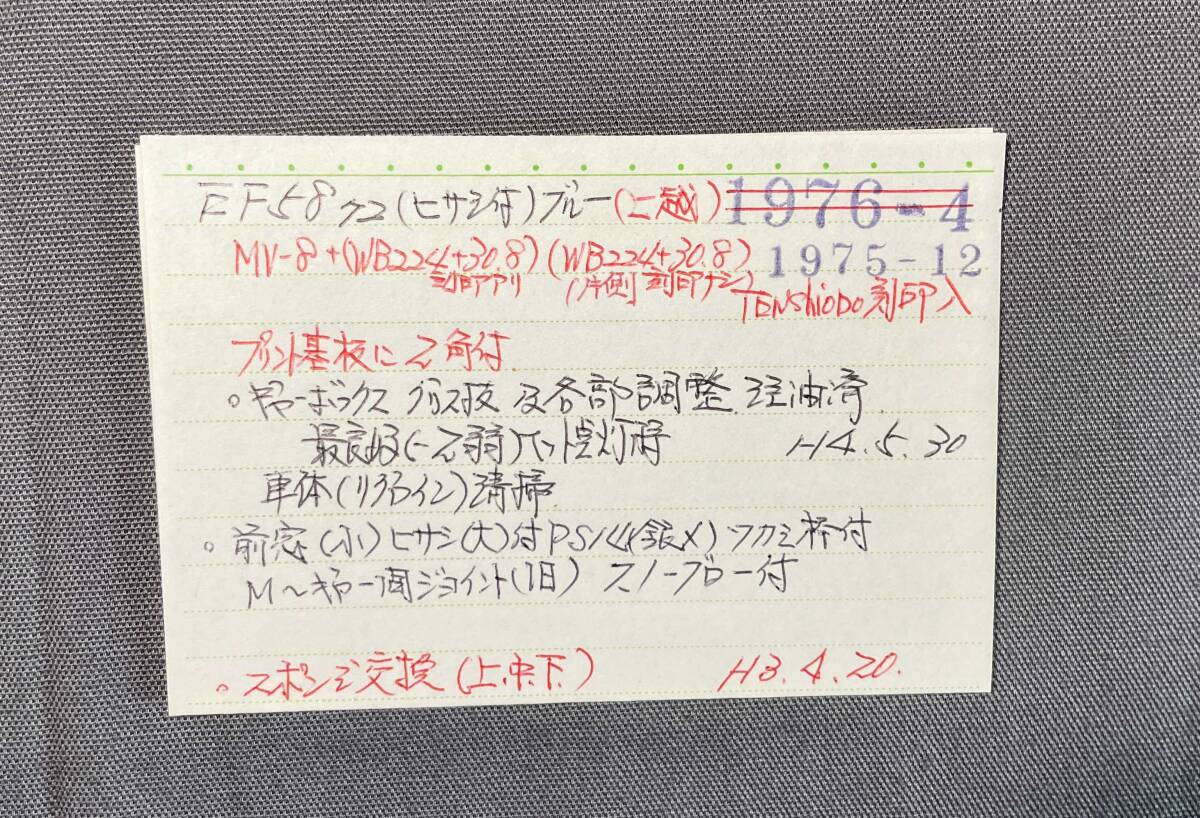 EF58 クコ(ヒサシ付)ブルー(上越) 1976-4
MV-8+(WB224+30.8)(WB224+30.8) 1975-12
刻印アリ (片側 刻印ナシ) TENShioDo刻印入
プリント基板に 角付
。ギヤーボックス グリス抜 及各部調整 注油済
最良好 ヘット点灯 H4.5.30
車体(リクライン)清掃
。前窓(小)ヒサシ(大)付PS14(銀メ)ツカミ棒付
M〜ギヤー間ジョイント(旧) スノーブロー付
。スポンジ交換(上.中.下) H3.4.20.